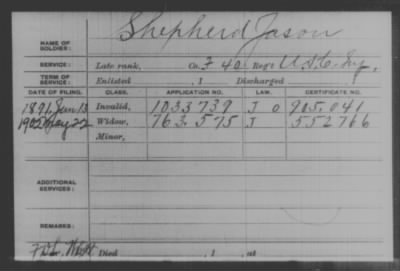 Shepherd Jason
NAME OF SOLDIER:
SERVICE: Late rank, Co. F 40 Reg't U.S.C. Inf.,
TERM OF SERVICE: Enlisted , 1 Discharged
DATE OF FILING. CLASS. APPLICATION NO. LAW. CERTIFICATE NO.
1891 Jan 13 Invalid, 1033739 J O 905.041
1902 22 Widow, 763.575 J 552766
Minor,
ADDITIONAL SERVICES:
REMARKS:
Died , 1 , at